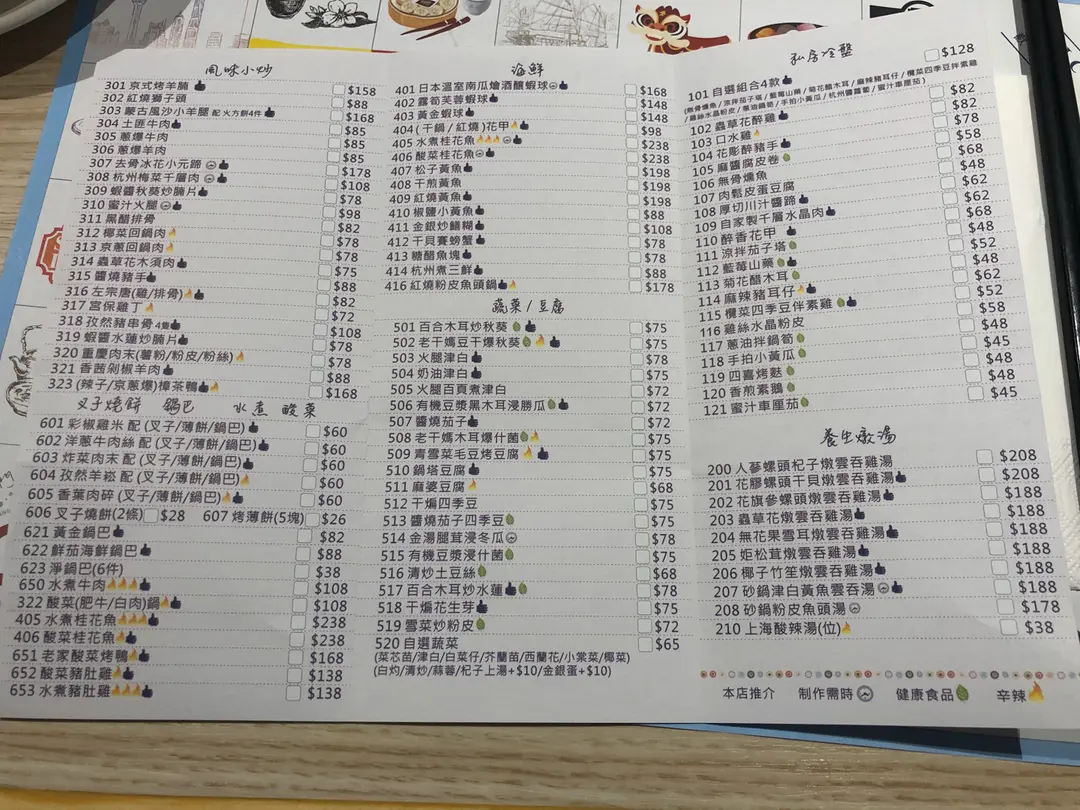 風味小炒
301 京式烤羊腩 $158
302 紅燒獅子頭 $88
303 蒙古風沙小羊腿 配火方餅4件 $168
304 土匪牛肉 $85
305 蔥爆牛肉 $85
306 蔥爆羊肉 $85
307 去骨冰花小元蹄 $178
308 杭州梅菜千層肉 $108
309 蝦醬秋葵炒腩片 $78
310 蜜汁火腿 $98
311 黑醋排骨 $82
312 椰菜回鍋肉 $78
313 京蔥回鍋肉 $78
314 蟲草花木須肉 $75
315 醬燒豬手 $88
316 左宗唐(雞/排骨) $82
317 宮保雞丁 $72
318 孜然豬串骨 4隻 $108
319 蝦醬水蓮炒腩片 $78
320 重慶肉末(薯粉/粉皮/粉絲) $78
321 香茜剁椒羊肉 $88
323 (辣子/京蔥爆)樟茶鴨 $168
叉子燒餅 鍋巴 水煮 酸菜
601 彩椒雞米 配 (叉子/薄餅/鍋巴) $60
602 洋蔥牛肉絲 配 (叉子/薄餅/鍋巴) $60
603 炸菜肉末 配 (叉子/薄餅/鍋巴) $60
604 孜然羊崧 配 (叉子/薄餅/鍋巴) $60
605 香葉肉碎 (叉子/薄餅/鍋巴) $60
606 叉子燒餅(2條) $28 607 烤薄餅(5塊) $26
621 黃金鍋巴 $82
622 鮮茄海鮮鍋巴 $88
623 淨鍋巴(6件) $38
650 水煮牛肉 $108
322 酸菜(肥牛/白肉)鍋 $108
405 水煮桂花魚 $238
406 酸菜桂花魚 $238
651 老家酸菜烤鴨 $168
652 酸菜豬肚雞 $138
653 水煮豬肚雞 $138
海鮮
401 日本溫室南瓜燴酒釀蝦球 $168
402 露筍芙蓉蝦球 $148
403 黃金蝦球 $148
404 (干鍋/紅燒)花甲 $98
405 水煮桂花魚 $238
406 酸菜桂花魚 $238
407 松子黃魚 $198
408 干煎黃魚 $198
409 紅燒黃魚 $198
410 椒鹽小黃魚 $88
411 金銀炒鱔糊 $108
412 干貝賽螃蟹 $78
413 糖醋魚塊 $78
414 杭州煮三鮮 $88
416 紅燒粉皮魚頭鍋 $178
蔬菜/豆腐
501 百合木耳炒秋葵 $75
502 老干媽豆干爆秋葵 $75
503 火腿津白 $78
504 奶油津白 $78
505 火腿百頁煮津白 $72
506 有機豆漿黑木耳浸勝瓜 $72
507 醬燒茄子 $72
508 老干媽木耳爆什菌 $75
509 青雪菜毛豆烤豆腐 $75
510 鍋塔豆腐 $75
511 麻婆豆腐 $68
512 干煸四季豆 $75
513 醬燒茄子四季豆 $75
514 金湯腿茸浸冬瓜 $78
515 有機豆漿浸什菌 $75
516 清炒土豆絲 $68
517 百合木耳炒水蓮 $78
518 干煸花生芽 $75
519 雪菜炒粉皮 $72
520 自選蔬菜 $65
(菜芯苗/津白/白菜仔/芥蘭苗/西蘭花/小棠菜/椰菜)
(白灼/清炒/蒜蓉/杞子上湯+$10/金銀蛋+$10)
私房冷盤
101 自選組合4款 $128
(無骨燻魚/涼拌茄子塔/藍莓山藥/菊花醋木耳/麻辣豬耳仔/欖菜四季豆拌素雞
/雞絲水晶粉皮/蔥油鍋筍/手拍小黃瓜/杭州醬蘿蔔/蜜汁車厘茄)
102 蟲草花醉雞 $82
103 口水雞 $82
104 花彫醉豬手 $78
105 麻醬腐皮卷 $58
106 無骨燻魚 $68
107 肉鬆皮蛋豆腐 $48
108 厚切川汁醬蹄 $62
109 自家製千層水晶肉 $62
110 醉香花甲 $68
111 涼拌茄子塔 $48
112 藍莓山藥 $52
113 菊花醋木耳 $48
114 麻辣豬耳仔 $62
115 欖菜四季豆伴素雞 $52
116 雞絲水晶粉皮 $58
117 蔥油拌鍋筍 $48
118 手拍小黃瓜 $45
119 四喜烤麩 $48
120 香煎素鵝 $48
121 蜜汁車厘茄 $45
養生燉湯
200 人蔘螺頭杞子燉雲吞雞湯 $208
201 花膠螺頭干貝燉雲吞雞湯 $208
202 花旗參螺頭燉雲吞雞湯 $188
203 蟲草花燉雲吞雞湯 $188
204 無花果雪耳燉雲吞雞湯 $188
205 姬松茸燉雲吞雞湯 $188
206 椰子竹笙燉雲吞雞湯 $188
207 砂鍋津白黃魚雲吞湯 $188
208 砂鍋粉皮魚頭湯 $178
210 上海酸辣湯(位) $38
本店推介 制作需時 健康食品 辛辣